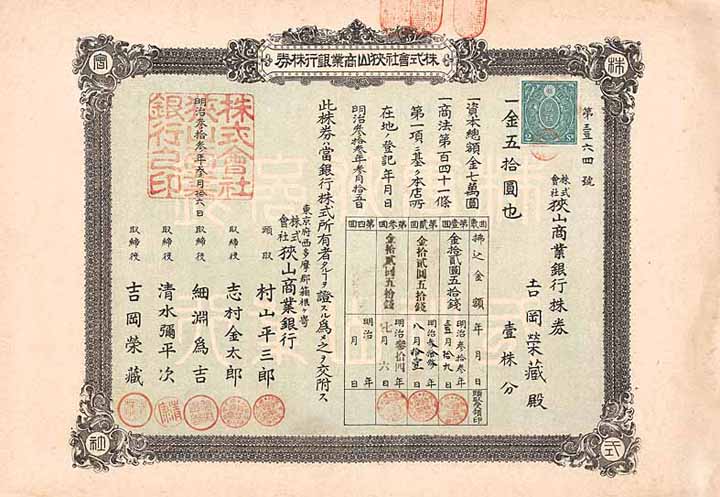 株式會社狹山商業銀行株券
株
式
會
社
第壹六四號
株式會社狹山商業銀行株券
壹株分
吉岡榮藏殿
一金五拾圓也
一資本總額金七萬圓
一商法第百四十一條
第一項ニ基ク本店所
在地ノ登記年月日
明治參拾參年參月拾五日
此株券ハ當銀行株式所有者タルヿヲ證スル爲メ之ヲ交附ス
明治參拾參年參月拾六日
東京府西多摩郡箱根ヶ崎
株式會社狹山商業銀行
頭取 村山平三郎
取締役 志村金太郎
取締役 細淵爲吉
取締役 清水彌平次
取締役 吉岡榮藏
回數 拂込金額 年月日 頭取領印
第壹回 金拾貳圓五拾錢 明治參拾參年壹月拾九日
第貳回 金拾貳圓五拾錢 明治參拾參年八月拾壹日
第參回 金拾貳圓五拾錢 明治參拾四年七月六日
第四回 明治 年 月 日
株式會社狹山商業銀行之印